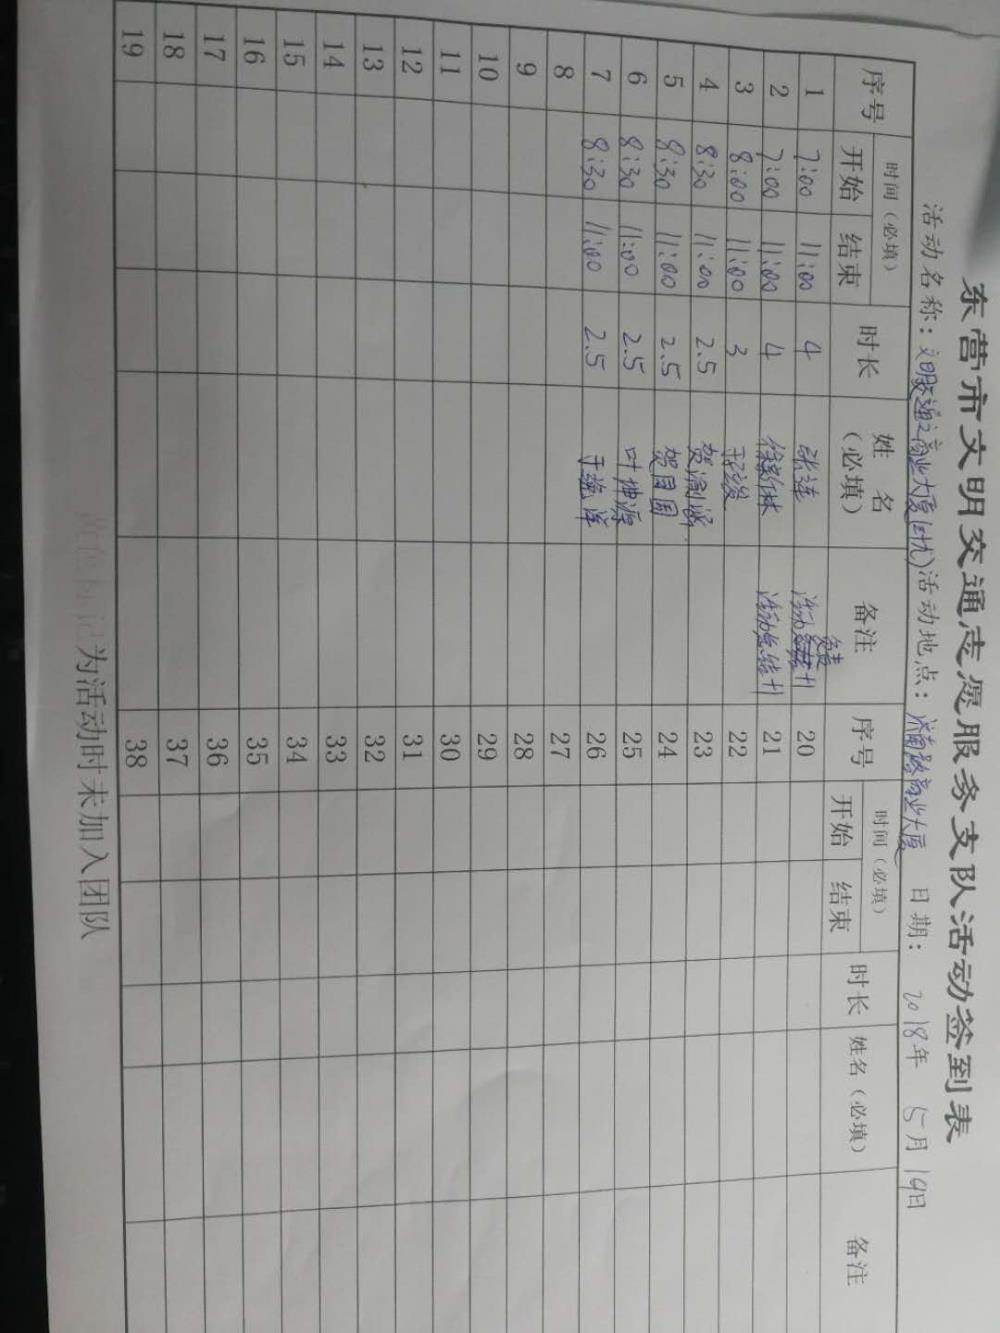 东营市文明交通志愿服务支队活动签到表
活动名称：文明交通之商业大厦 活动地点：济南路商业大厦 日期：2018年 5月 19日
序号 时间（必填） 时长 姓名（必填） 备注 序号 时间（必填） 时长 姓名（必填） 备注
开始 结束 开始 结束
1 7:00 11:00 4 张莲 活动负责 20
2 7:00 11:00 4 21
3 8:00 11:00 3 22
4 8:30 11:00 2.5 23
5 8:30 11:00 2.5 24
6 8:30 11:00 2.5 叶坤源 25
7 8:30 11:00 2.5 26
8 27
9 28
10 29
11 30
12 31
13 32
14 33
15 34
16 35
17 36
18 37
19 38
黄色标记为活动时未加入团队